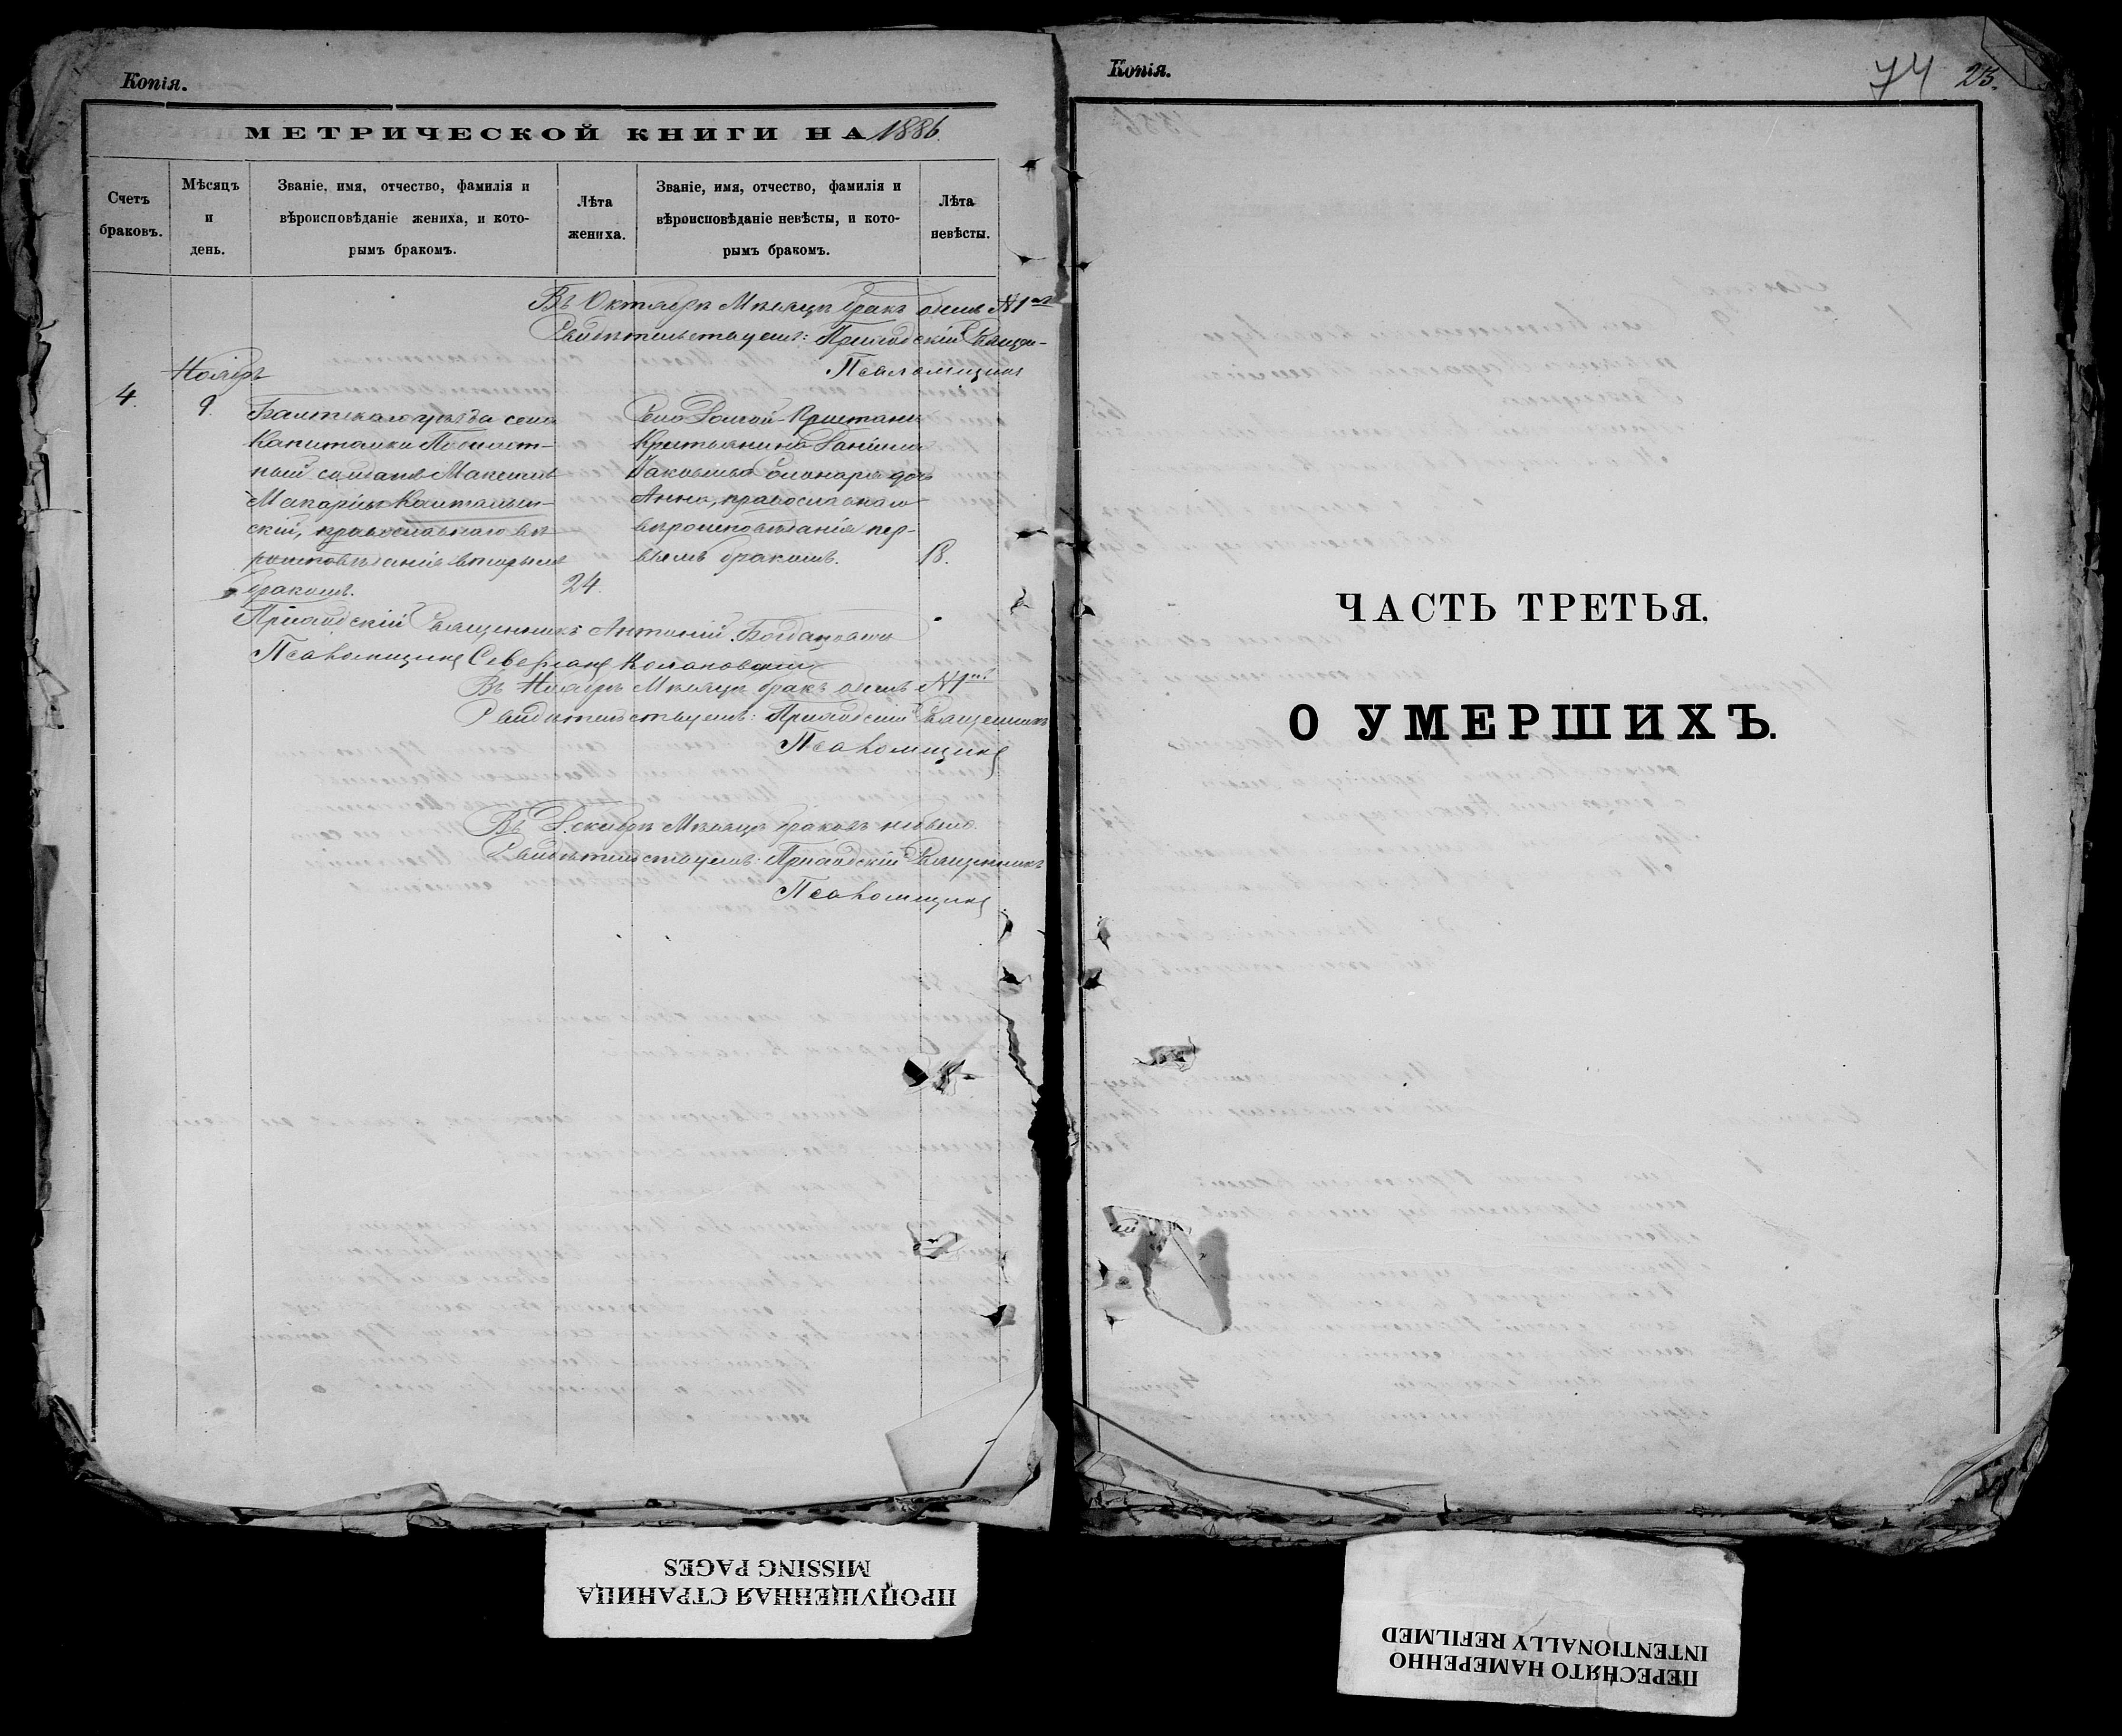 Копія.
МЕТРИЧЕСКОЙ КНИГИ НА 1886.
Счетъ браковъ.
Мѣсяцъ и день.
Званіе, имя, отчество, фамилія и
вѣроисповѣданіе жениха, и кото-
рымъ бракомъ.
Лѣта жениха.
Званіе, имя, отчество, фамилія и
вѣроисповѣданіе невѣсты, и кото-
рымъ бракомъ.
Лѣта невѣсты.
Въ Октябрѣ Мѣсяцѣ бракъ одинъ №1
Свидѣтельствуемъ: Приходскій Священ-
Псаломщикъ
Ноябрь
4.
9.
Балтскаго уѣзда села
Капитанки
ный солдатъ Максимъ
Макаріевъ
скій, православнаго вѣ-
роисповѣданія вторымъ
бракомъ.
24.
Село
Крестьянина Даніила
дочь
Анна, православнаго
вѣроисповѣданія пер-
вымъ бракомъ.
18.
Приходскій Священникъ Антоній
Псаломщикъ
Въ Ноябрѣ Мѣсяцѣ бракъ одинъ №1
Свидѣтельствуемъ: Приходскій Священникъ
Псаломщикъ
Въ Декабрѣ Мѣсяцѣ браковъ небыло.
Свидѣтельствуемъ: Приходскій Священникъ
Псаломщикъ
ПРОПУЩЕННАЯ СТРАНИЦА
MISSING PAGES
Копія.
74 25.
ЧАСТЬ ТРЕТЬЯ.
О УМЕРШИХЪ.
ПЕРЕСНЯТО НАМЕРЕННО
INTENTIONALLY REFILMED